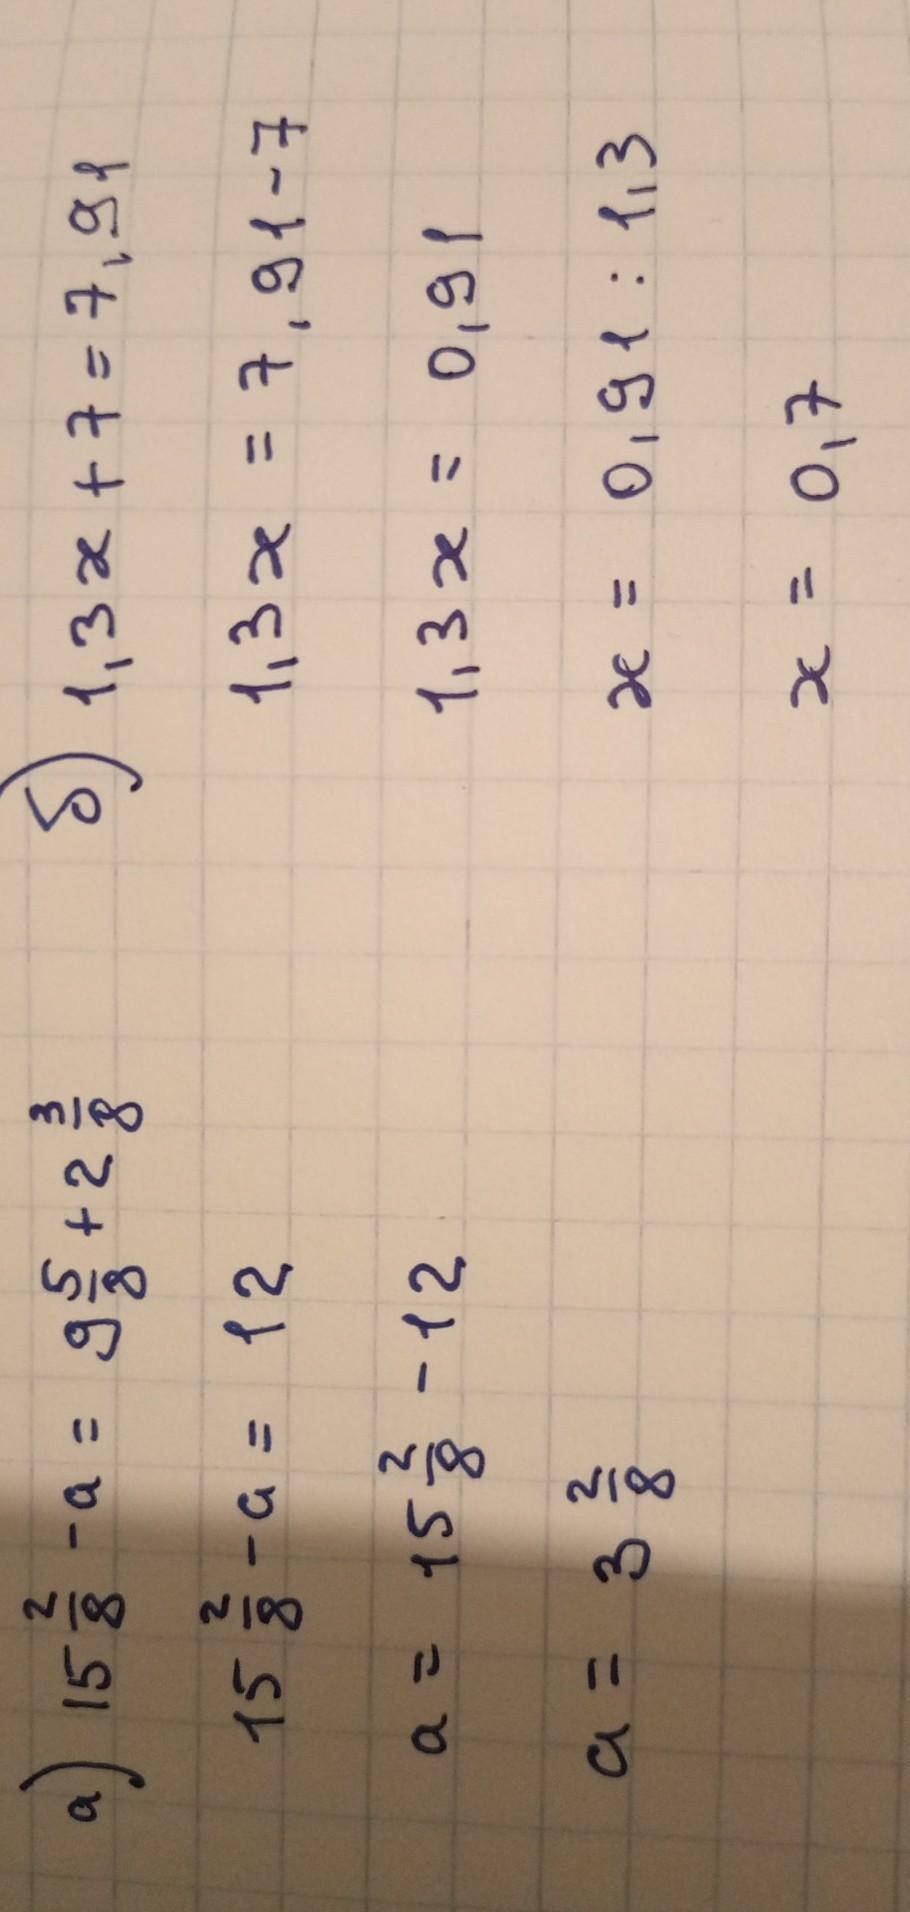 а) 15 2/8 - a = 9 5/8 + 2 3/8
15 2/8 - a = 12
a = 15 2/8 - 12
a = 3 2/8
б) 1,3x + 7 = 7,91
1,3x = 7,91 - 7
1,3x = 0,91
x = 0,91 : 1,3
x = 0,7